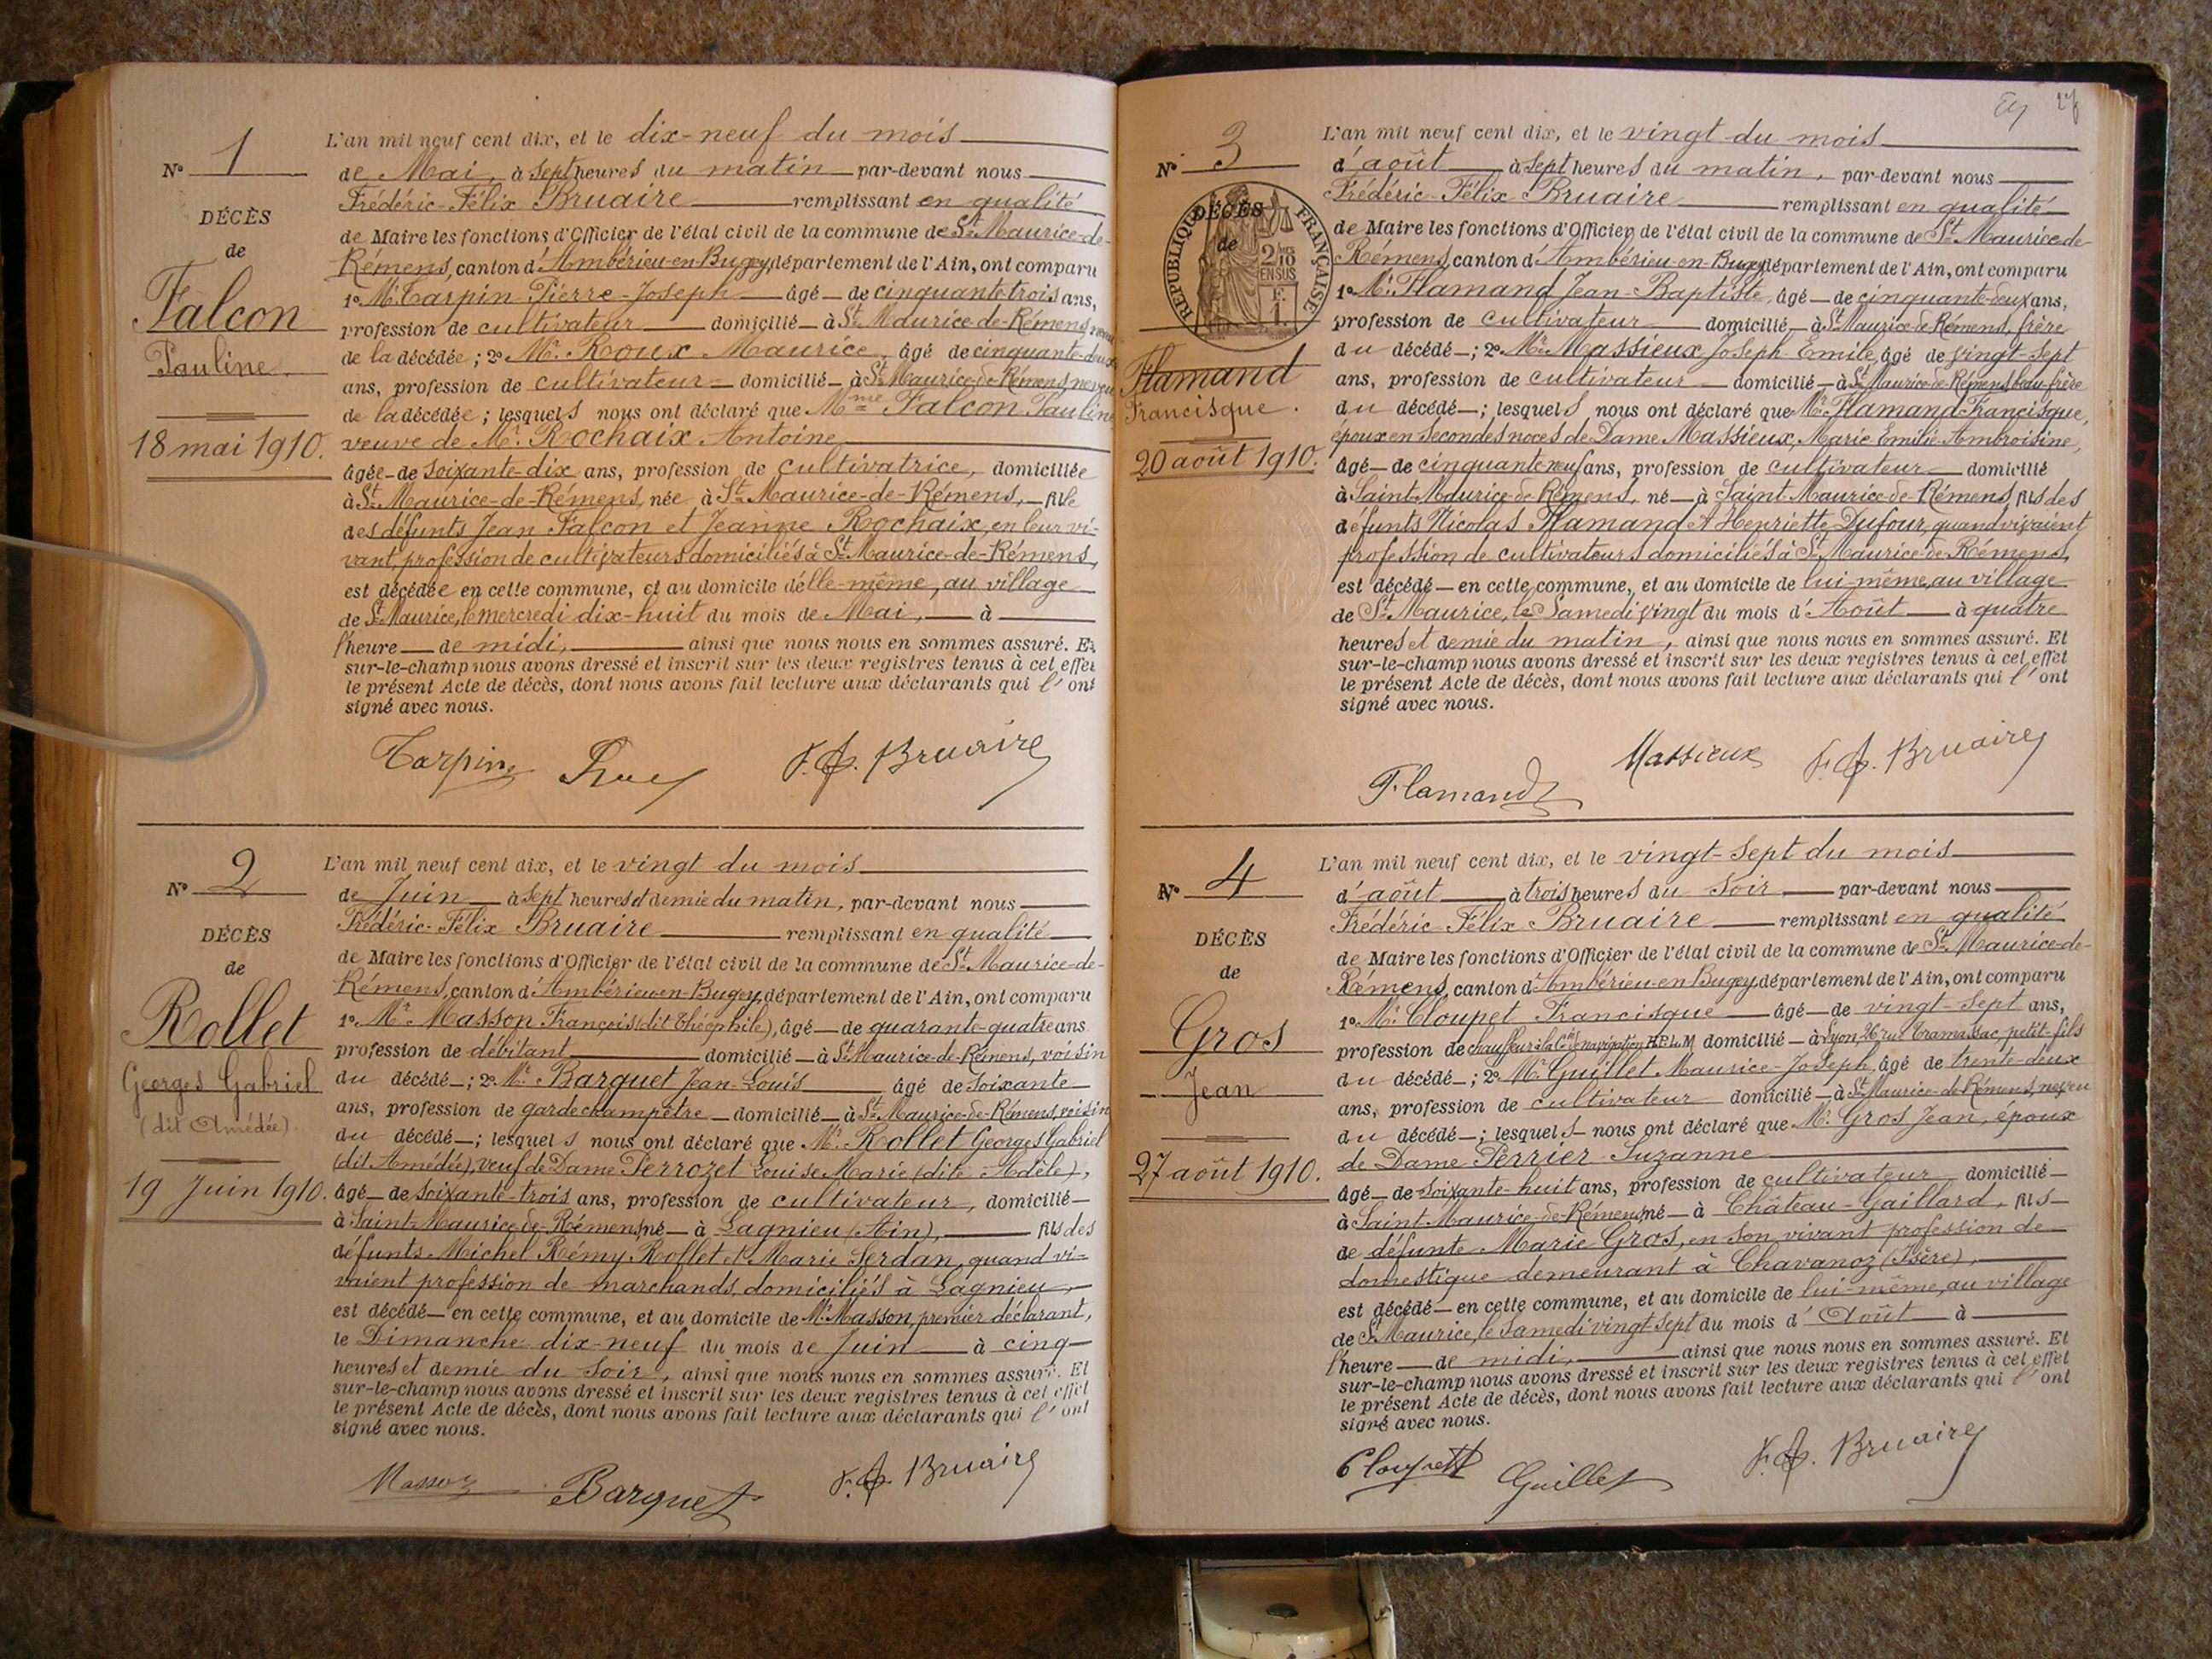 N° 1
DÉCÈS
de
Falcon
Pauline
18 mai 1910.
L'an mil neuf cent dix, et le dix-neuf du mois
de Mai, à sept heures du matin par-devant nous
Frédéric-Félix Bruaire remplissant en qualité
de Maire les fonctions d'Officier de l'état civil de la commune de St Maurice-de-
Rémens, canton d'Ambérieu-en-Bugey, département de l'Ain, ont comparu
1° Mr Tarpin Pierre-Joseph âgé de cinquante-trois ans,
profession de cultivateur domicilié à St Maurice-de-Rémens,
de la décédée; 2° Mr. Roux Maurice, âgé de cinquante-deux
ans, profession de cultivateur domicilié à St Maurice-de-Rémens, neveu
de la décédée; lesquels nous ont déclaré que Mme Falcon Pauline
veuve de Mr. Rochaix Antoine
âgée de soixante-dix ans, profession de cultivatrice, domiciliée
à St Maurice-de-Rémens, née à St Maurice-de-Rémens, fille
des défunts Jean Falcon et Jeanne Rochaix, en leur vi-
vant, profession de cultivateurs domiciliés à St Maurice-de-Rémens,
est décédée en cette commune, et au domicile d'elle-même, au village
de St Maurice, le mercredi dix-huit du mois de Mai, à
l'heure de midi, ainsi que nous nous en sommes assuré. Et
sur-le-champ nous avons dressé et inscrit sur les deux registres tenus à cet effet
le présent Acte de décès, dont nous avons fait lecture aux déclarants qui l'ont
signé avec nous.
Tarpin F. F. Bruaire
N° 2
DÉCÈS
de
Rollet
Georges Gabriel
(dit Amédée)
19 Juin 1910.
L'an mil neuf cent dix, et le vingt du mois
de Juin à sept heures et demie du matin, par-devant nous
Frédéric-Félix Bruaire remplissant en qualité
de Maire les fonctions d'Officier de l'état civil de la commune de St Maurice-de-
Rémens, canton d'Ambérieu-en-Bugey, département de l'Ain, ont comparu
1° Mr Masson François (dit Théophile), âgé de quarante-quatre ans
profession de débitant domicilié à St Maurice-de-Rémens, voisin
du décédé; 2° Mr. Barquet Jean-Louis âgé de soixante
ans, profession de garde champêtre domicilié à St Maurice-de-Rémens, voisin
du décédé; lesquels nous ont déclaré que Mr. Rollet Georges Gabriel
(dit Amédée), veuf de Dame Perrozet Louise Marie (dite Adèle),
âgé de soixante-trois ans, profession de cultivateur, domicilié
à Saint-Maurice-de-Rémens, né à Lagnieu (Ain), fils des
défunts Michel Rémy Rollet et Marie Serdan, quand vi-
vaient profession de marchands, domiciliés à Lagnieu,
est décédé en cette commune, et au domicile de Mr. Masson, premier déclarant,
le Dimanche dix-neuf du mois de Juin à cinq
heures et demie du soir, ainsi que nous nous en sommes assuré. Et
sur-le-champ nous avons dressé et inscrit sur les deux registres tenus à cet effet
le présent Acte de décès, dont nous avons fait lecture aux déclarants qui l'ont
signé avec nous.
Masson Barquet F. F. Bruaire
27
N° 3
RÉPUBLIQUE FRANÇAISE
2/10 EN SUS
DÉCÈS
de
Flamand
Francisque.
20 août 1910.
L'an mil neuf cent dix, et le vingt du mois
d'août à sept heures du matin, par-devant nous
Frédéric-Félix Bruaire remplissant en qualité
de Maire les fonctions d'Officier de l'état civil de la commune de St Maurice-de-
Rémens, canton d'Ambérieu-en-Bugey, département de l'Ain, ont comparu
1° Mr. Flamand Jean-Baptiste, âgé de cinquante-deux ans,
profession de cultivateur domicilié à St Maurice-de-Rémens, frère
du décédé; 2° Mr Massieux Joseph-Emile, âgé de vingt-sept
ans, profession de cultivateur domicilié à St Maurice-de-Rémens, beau-frère
du décédé; lesquels nous ont déclaré que Mr Flamand Francisque,
époux en secondes noces de Dame Massieux, Marie Emilie Ambroisine,
âgé de cinquante-neuf ans, profession de cultivateur domicilié
à Saint-Maurice-de-Rémens, né à Saint-Maurice-de-Rémens, fils des
défunts Nicolas Flamand et Henriette Dufour, quand vivaient
profession de cultivateurs domiciliés à St Maurice-de-Rémens,
est décédé en cette commune, et au domicile de lui-même, au village
de St Maurice, le Samedi vingt du mois d'Août à quatre
heures et demie du matin, ainsi que nous nous en sommes assuré. Et
sur-le-champ nous avons dressé et inscrit sur les deux registres tenus à cet effet
le présent Acte de décès, dont nous avons fait lecture aux déclarants qui l'ont
signé avec nous.
Flamand Massieux F. F. Bruaire
N° 4
DÉCÈS
de
Gros
Jean
27 août 1910.
L'an mil neuf cent dix, et le vingt-sept du mois
d'août à trois heures du soir par-devant nous
Frédéric Félix Bruaire remplissant en qualité
de Maire les fonctions d'Officier de l'état civil de la commune de St Maurice-de-
Rémens, canton d'Ambérieu-en-Bugey, département de l'Ain, ont comparu
1° Mr. Cloupet Francisque âgé de vingt-sept ans,
profession de chauffeur à la Cie de navigation H.P.L.M domicilié à Lyon, 26 rue Tramassac, petit-fils
du décédé; 2° Mr. Guillet Maurice-Joseph, âgé de trente-deux
ans, profession de cultivateur domicilié à St Maurice-de-Rémens, neveu
du décédé; lesquels nous ont déclaré que Mr. Gros Jean, époux
de Dame Perrier Suzanne
âgé de soixante-huit ans, profession de cultivateur domicilié
à Saint-Maurice-de-Rémens, né à Château-Gaillard, fils
de défunte Marie Gros, en son vivant profession de
domestique demeurant à Chavanoz (Isère),
est décédé en cette commune, et au domicile de lui-même, au village
de St Maurice, le Samedi vingt-sept du mois d'Août à
l'heure de midi, ainsi que nous nous en sommes assuré. Et
sur-le-champ nous avons dressé et inscrit sur les deux registres tenus à cet effet
le présent Acte de décès, dont nous avons fait lecture aux déclarants qui l'ont
signé avec nous.
Cloupet Guillet F. F. Bruaire